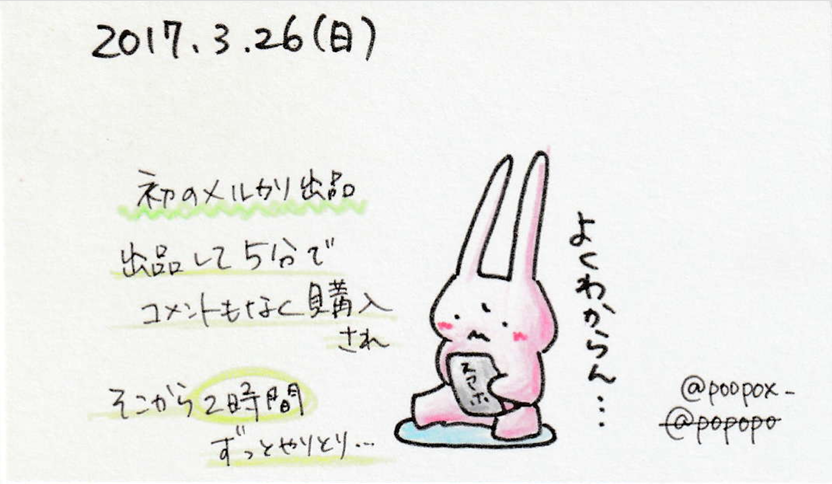 2017.3.26(日)
初のメルカリ出品
出品して5分で
コメントもなく購入
され
そこから2時間
ずっとやりとり…
よくわからん…
スマホ
@poopox_
@popopo